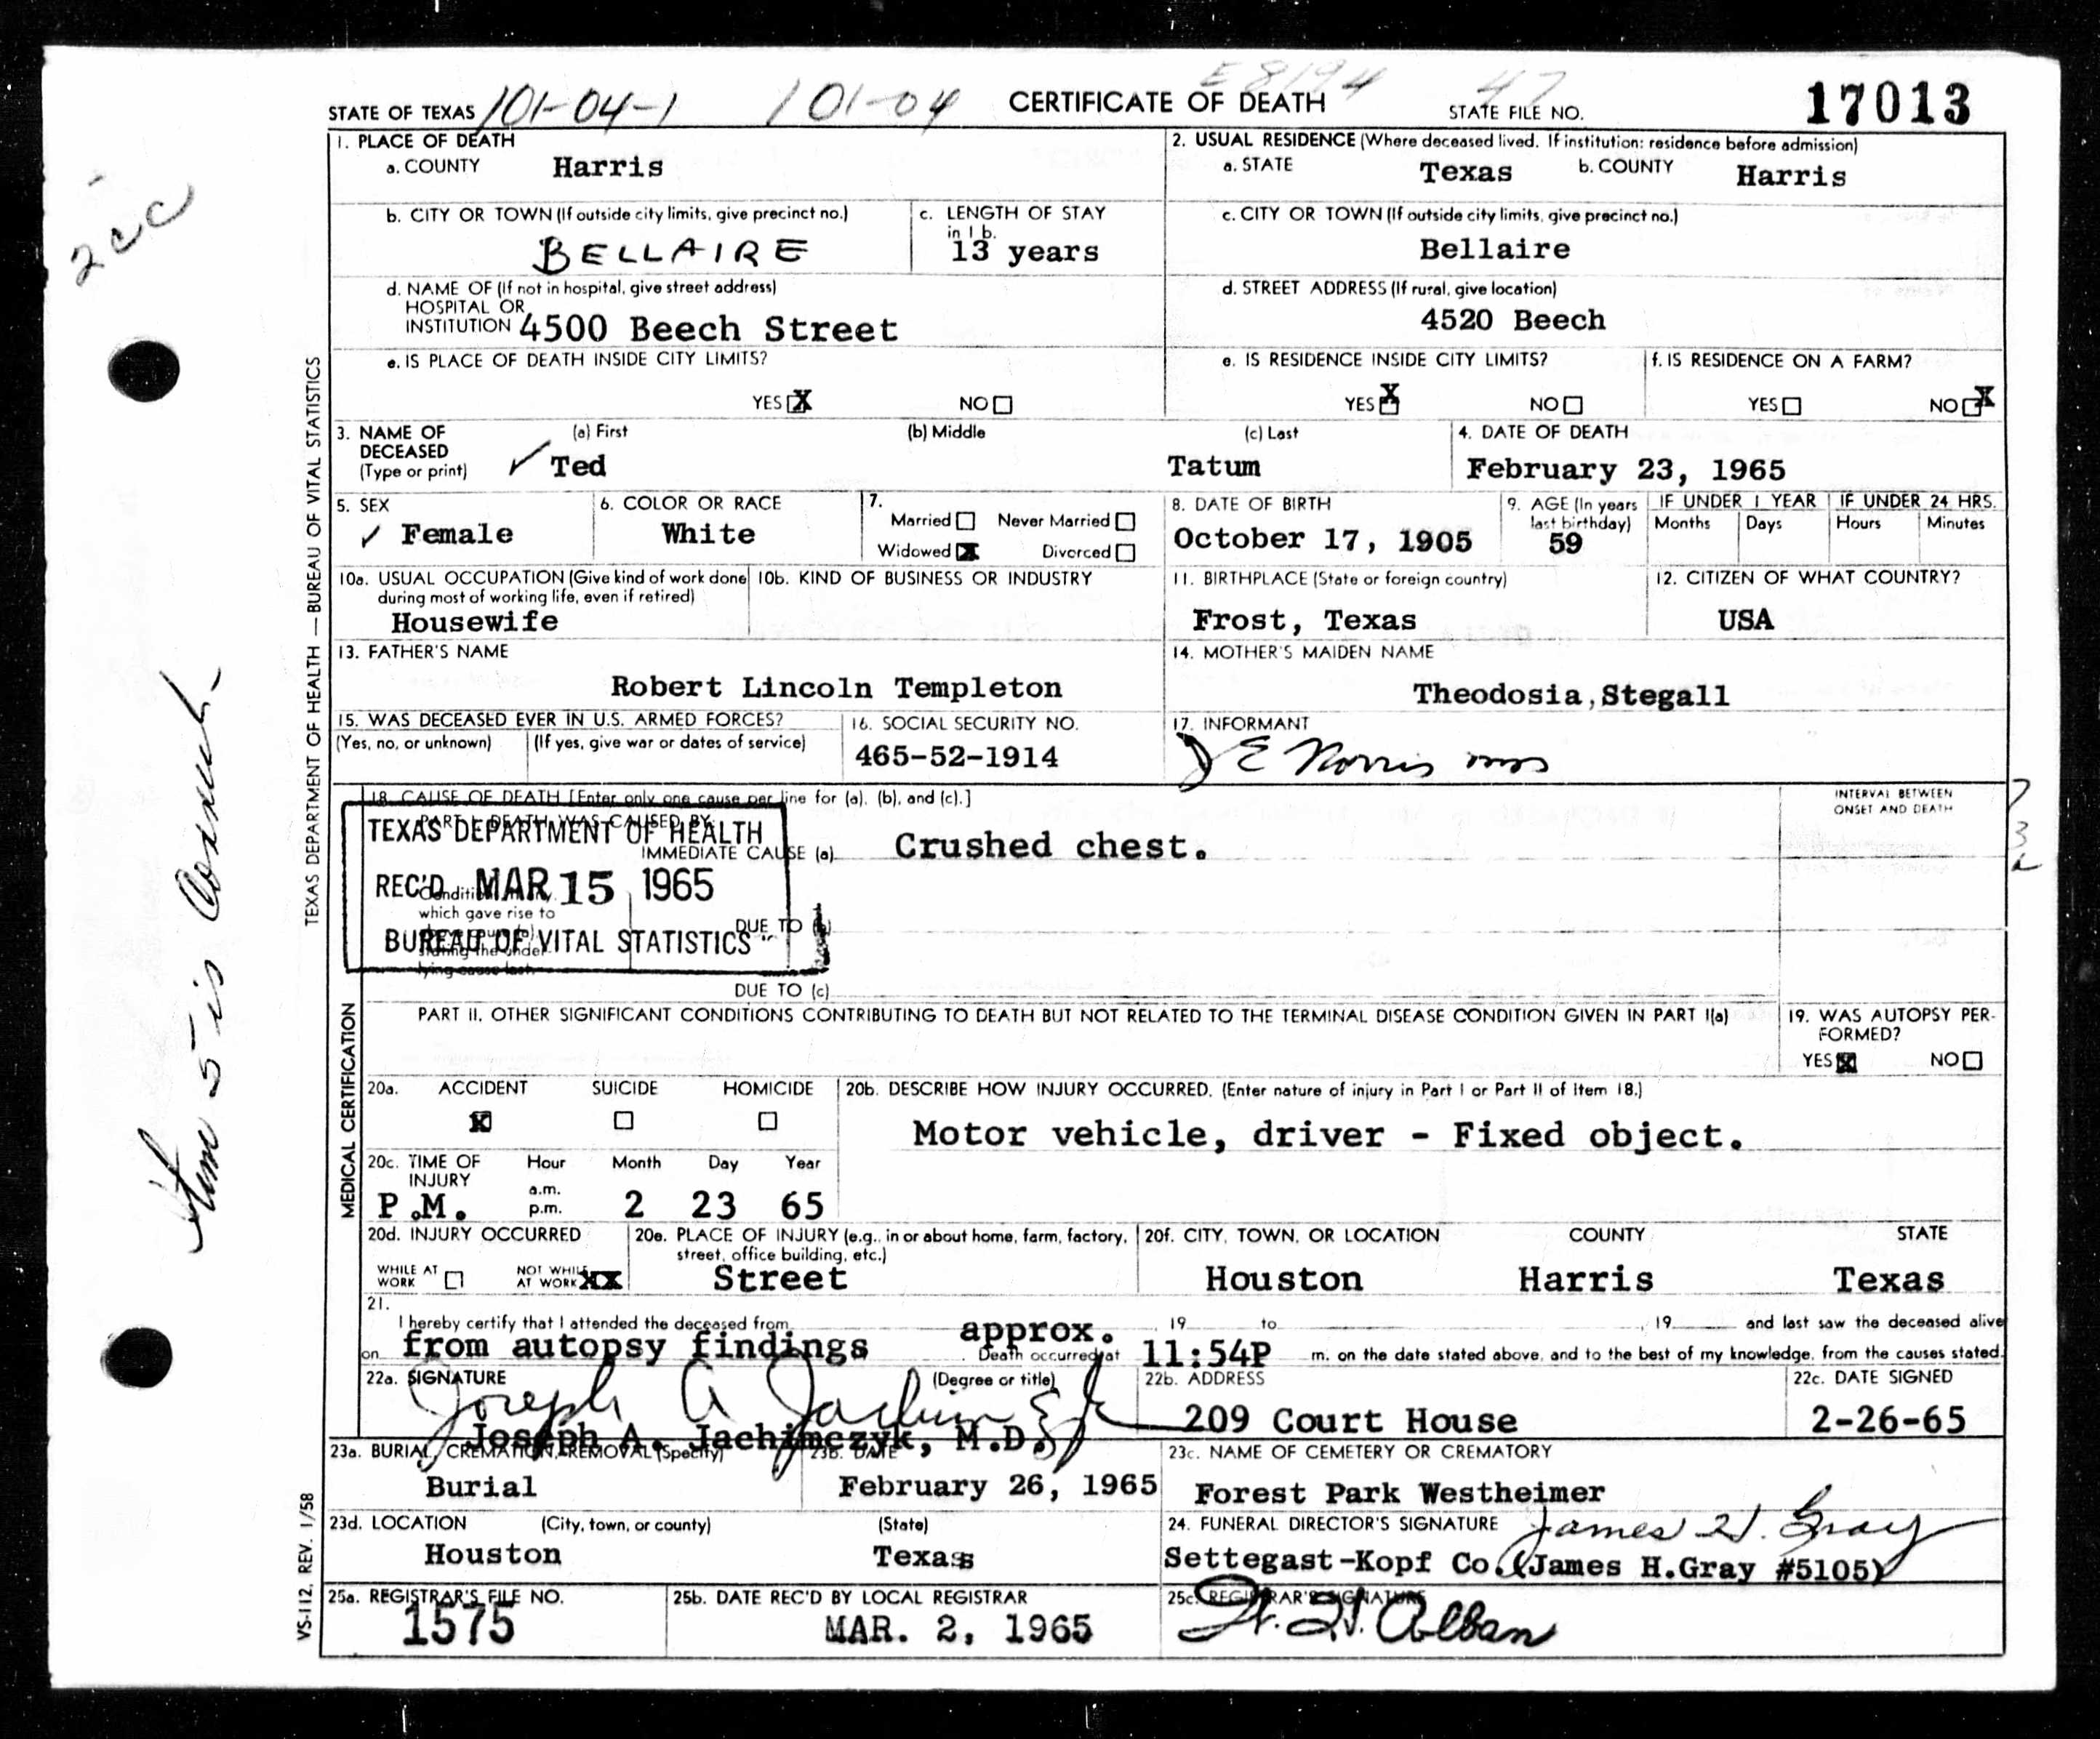 E8194 47
STATE OF TEXAS 101-04-1 101-04 CERTIFICATE OF DEATH STATE FILE NO. 17013
2cc
Item 5 is Correct.
TEXAS DEPARTMENT OF HEALTH — BUREAU OF VITAL STATISTICS
1. PLACE OF DEATH
a. COUNTY Harris
2. USUAL RESIDENCE (Where deceased lived. If institution: residence before admission)
a. STATE Texas b. COUNTY Harris
b. CITY OR TOWN (If outside city limits, give precinct no.)
BELLAIRE
c. LENGTH OF STAY
in 1 b.
13 years
c. CITY OR TOWN (If outside city limits, give precinct no.)
Bellaire
d. NAME OF (If not in hospital, give street address)
HOSPITAL OR
INSTITUTION 4500 Beech Street
d. STREET ADDRESS (If rural, give location)
4520 Beech
e. IS PLACE OF DEATH INSIDE CITY LIMITS?
YES X NO
e. IS RESIDENCE INSIDE CITY LIMITS?
YES X NO
f. IS RESIDENCE ON A FARM?
YES NO X
3. NAME OF
DECEASED
(Type or print)
(a) First (b) Middle (c) Last
✓ Ted Tatum
4. DATE OF DEATH
February 23, 1965
5. SEX
✓ Female
6. COLOR OR RACE
White
7.
Married Never Married
Widowed X Divorced
8. DATE OF BIRTH
October 17, 1905
9. AGE (In years
last birthday)
59
IF UNDER 1 YEAR IF UNDER 24 HRS.
Months Days Hours Minutes
10a. USUAL OCCUPATION (Give kind of work done
during most of working life, even if retired)
Housewife
10b. KIND OF BUSINESS OR INDUSTRY
11. BIRTHPLACE (State or foreign country)
Frost, Texas
12. CITIZEN OF WHAT COUNTRY?
USA
13. FATHER'S NAME
Robert Lincoln Templeton
14. MOTHER'S MAIDEN NAME
Theodosia, Stegall
15. WAS DECEASED EVER IN U.S. ARMED FORCES?
(Yes, no, or unknown) (If yes, give war or dates of service)
16. SOCIAL SECURITY NO.
465-52-1914
17. INFORMANT
J E Norris mrs
MEDICAL CERTIFICATION
18. CAUSE OF DEATH [Enter only one cause per line for (a), (b), and (c).]
PART I. DEATH WAS CAUSED BY:
IMMEDIATE CAUSE (a) Crushed chest.
INTERVAL BETWEEN
ONSET AND DEATH
TEXAS DEPARTMENT OF HEALTH
REC'D MAR 15 1965
BUREAU OF VITAL STATISTICS
which gave rise to
stating the under-
lying cause last.
DUE TO (b)
DUE TO (c)
PART II. OTHER SIGNIFICANT CONDITIONS CONTRIBUTING TO DEATH BUT NOT RELATED TO THE TERMINAL DISEASE CONDITION GIVEN IN PART I(a)
19. WAS AUTOPSY PER-
FORMED?
YES X NO
20a. ACCIDENT SUICIDE HOMICIDE
X
20b. DESCRIBE HOW INJURY OCCURRED. (Enter nature of injury in Part I or Part II of Item 18.)
Motor vehicle, driver - Fixed object.
20c. TIME OF
INJURY
Hour Month Day Year
a.m.
p.m.
P.M. 2 23 65
20d. INJURY OCCURRED
WHILE AT
WORK
NOT WHILE
AT WORK XX
20e. PLACE OF INJURY (e.g., in or about home, farm, factory,
street, office building, etc.)
Street
20f. CITY, TOWN, OR LOCATION COUNTY STATE
Houston Harris Texas
21.
I hereby certify that I attended the deceased from , 19 to , 19 and last saw the deceased alive
on from autopsy findings . approx. Death occurred at 11:54P m. on the date stated above, and to the best of my knowledge, from the causes stated.
22a. SIGNATURE (Degree or title)
Joseph A Jachimczyk
Joseph A. Jachimczyk, M.D.
22b. ADDRESS
209 Court House
22c. DATE SIGNED
2-26-65
23a. BURIAL, CREMATION, REMOVAL (Specify)
Burial
23b. DATE
February 26, 1965
23c. NAME OF CEMETERY OR CREMATORY
Forest Park Westheimer
23d. LOCATION (City, town, or county) (State)
Houston Texas
24. FUNERAL DIRECTOR'S SIGNATURE James H. Gray
Settegast-Kopf Co. (James H.Gray #5105)
25a. REGISTRAR'S FILE NO.
1575
25b. DATE REC'D BY LOCAL REGISTRAR
MAR. 2, 1965
25c. REGISTRAR'S SIGNATURE
W. H. Alban
VS-112, REV. 1/58